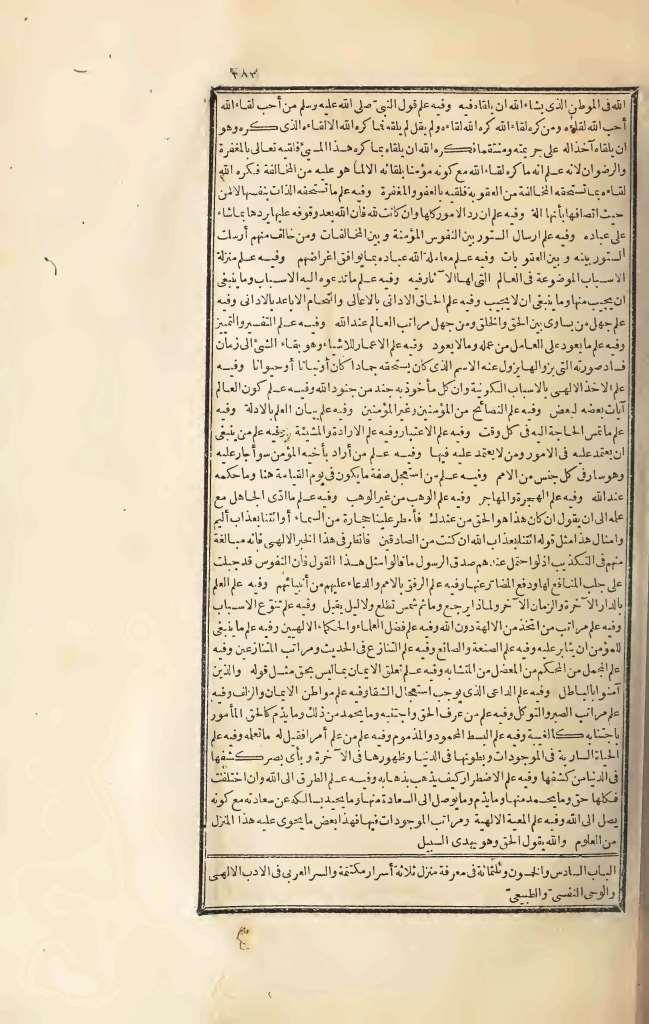 ٣٨٣
الله فى الموطن الذى يشاء الله ان يلقاه فيه وفيه علم قول النبى صلى الله عليه وسلم من أحب لقاء الله
أحب الله لقاءه ومن كره لقاء الله كره الله لقاءه ولم يقل لم يلقه فما كره الله الالقاءه الذى كرهه وهو
ان يلقاه آخذاله على جريمته ومنتقما فكره الله ان يلقاه بما كره هذا المسىء فلقيه تعالى بالمغفرة
والرضوان لانه علم انه ما كره لقاء الله مع كونه مؤمنا بلقائه الالما هو عليه من المخالفة فكره الله
لقاءه بما تستحقه المخالفة من العقوبة فلقيه بالعفو والمغفرة وفيه علم ما تستحقه الذات بنفسها لا من
حيث اتصافها بأنها اله وفيه علم ان رد الامور كلها وان كانت لله فان الله بعد وقوفه عليها يردها بما شاء
على عباده وفيه علم ارسال الستور بين النفوس المؤمنة وبين المخالفات ومن خالف منهم أرسلت
الستور بينه وبين العقوبات وفيه علم معاملة الله عباده بما يوافق اغراضهم وفيه علم منزلة
الاسباب الموضوعة فى العالم التى لها الآثار فيه وفيه علم ما تدعوه اليه الاسباب وما ينبغى
ان يجيب منها وما ينبغى ان لا يجيب وفيه علم الحاق الادانى بالاعالى والتحام الاباعد بالادانى وفيه
علم جهل من يساوى بين الحق والخلق ومن جهل مراتب العالم عند الله وفيه علم التفسير والتمييز
وفيه علم ما يعود على العامل من عمله وما لا يعود وفيه علم الاعمار للاشياء وهو بقاء الشئ الى زمان
فساد صورته التى بزوالها يزول عنه الاسم الذى كان يستحقه جمادا كان أو نباتا أو حيوانا وفيه
علم الاخذ الالهى بالاسباب الكونية وان كل مأخوذ به جند من جنود الله وفيه علم كون العالم
آيات بعضه لبعض وفيه علم النصائح من المؤمنين وغير المؤمنين وفيه علم بيان العلم بالادلة وفيه
علم ما تمس الحاجة اليه فى كل وقت وفيه علم الاعتبار وفيه علم الارادة والمشيئة وفيه علم من ينبغى
ان يعتمد عليه فى الامور ومن لا يعتمد عليه فيها وفيه علم من أراد بأخيه المؤمن سوأ جار عليه
وهو سار فى كل جنس من الامم وفيه علم من استعجل صفة ما يكون فى يوم القيامة هنا وما حكمه
عند الله وفيه علم الهجرة والمهاجر وفيه علم الوهب من غير الوهب وفيه علم ما ادّى الجاهل مع
علمه الى ان يقول ان كان هذا هو الحق من عندك فأمطر علينا حجارة من السماء أو ائتنا بعذاب أليم
وامثال هذا مثل قوله ائتنا بعذاب الله ان كنت من الصادقين فانظر فى هذا الخبر الالهى فانه مبالغة
منهم فى التكذيب اذ لو احتمل عندهم صدق الرسول ما قالوا مثل هذا القول فان النفوس قد جبلت
على جلب المنافع لها ودفع المضار عنها وفيه علم الرفق بالامم والدعاء عليهم من أنبيائهم وفيه علم العلم
بالدار الآخرة والزمان الآخر ولماذا يرجع وما ثم شمس تطلع ولا ليل يقبل وفيه علم تنوع الاسباب
وفيه علم مراتب من اتخذ من الالهة دون الله وفيه علم فضل العلماء والحكماء الالهيين وفيه علم ما ينبغى
للمؤمن ان يثابر عليه وفيه علم الصنعة والصانع وفيه علم التنازع فى الحديث ومراتب المتنازعين وفيه
علم المجمل من المحكم من المفصل من المتشابه وفيه علم تعلق الايمان بما ليس بحق مثل قوله والذين
آمنوا بالباطل وفيه علم الداعى الذى يوجب استعجال الشقا وفيه علم مواطن الايمان والزلف وفيه
علم مراتب الصبر والتوكل وفيه علم من عرف الحق واجتنبه وما يحمد من ذلك وما يذم كالحق المأمور
باجتنابه كالغيبة وفيه علم البسط المحمود والمذموم وفيه علم من علم أمرا فقيل له ما تعلمه وفيه علم
الحياة السارية فى الموجودات وبطونها فى الدنيا وظهورها فى الآخرة وبأى بصر كشفها
فى الدنيا من كشفها وفيه علم الاضطرار كيف يذهب بذهابه وفيه علم الطرق الى الله وان اختلفت
فكلها حق وما يحمد منها وما يذم وما يوصل الى السعادة منها وما يحيد بسالكه عن سعادته مع كونه
يصل الى الله وفيه علم المعية الالهية ومراتب الموجودات فيها فهذا بعض ما يحوى عليه هذا المنزل
من العلوم والله يقول الحق وهو يهدى السبيل
الباب السادس والخمسون وثلثمائة فى معرفة منزل ثلاثة أسرار مكتتمة والسر العربى فى الادب الالهى
والوحى النفسى والطبيعى